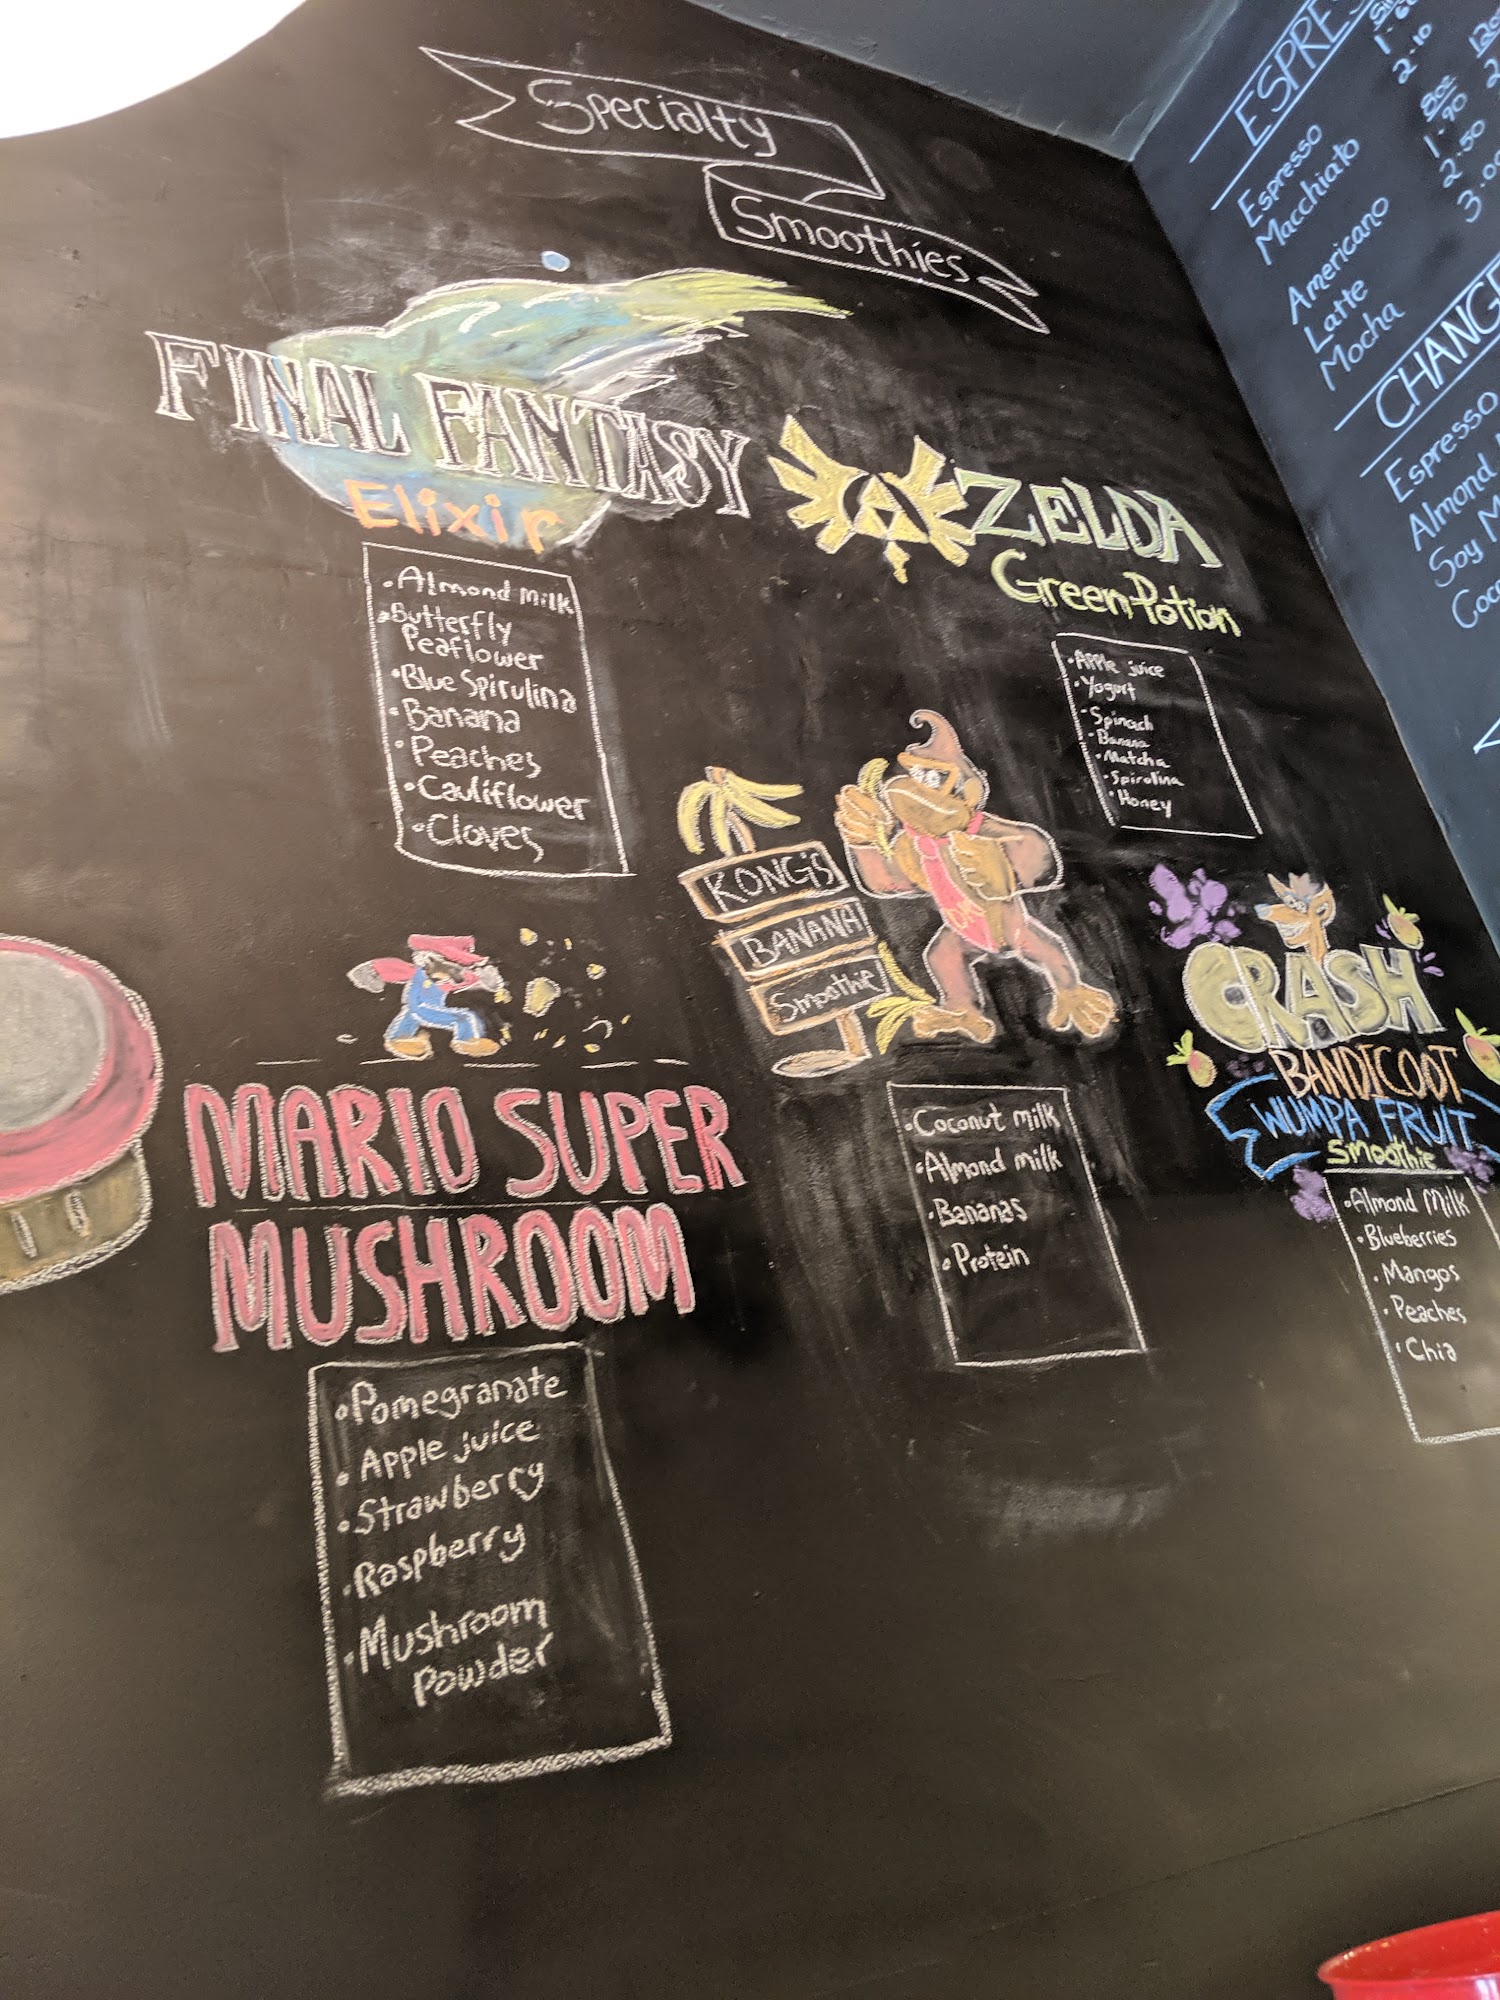 Specialty
Smoothies
FINAL FANTASY
Elixir
• Almond Milk
• Butterfly
Peaflower
• Blue Spirulina
• Banana
• Peaches
• Cauliflower
• Cloves
ZELDA
Green Potion
• Apple juice
• Yogurt
• Spinach
• Banana
• Matcha
• Spirolina
• Honey
KONG'S
BANANA
Smoothie
DK
• Coconut milk
• Almond milk
• Bananas
• Protein
CRASH
BANDICOOT
WUMPA FRUIT
Smoothie
• Almond Milk
• Blueberries
• Mangos
• Peaches
• Chia
MARIO SUPER
MUSHROOM
• Pomegranate
• Apple juice
• Strawberry
• Raspberry
• Mushroom
Powder
Espresso
Macchiato 2.10
8oz
Americano 1.90
Latte 2.50
Mocha 3.00
Espresso
Almond
Soy